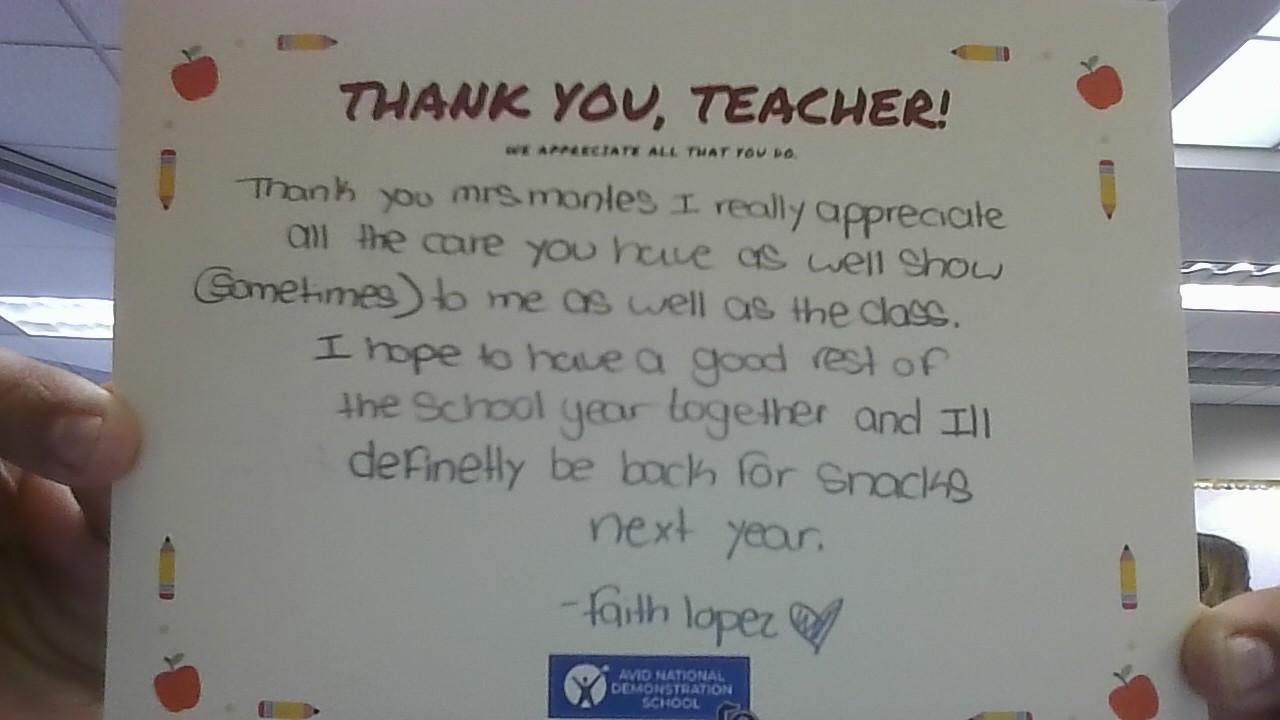 THANK YOU, TEACHER!
WE APPRECIATE ALL THAT YOU DO.
Thank you mrs montes I really appreciate
all the care you have as well show
(sometimes) to me as well as the class.
I hope to have a good rest of
the school year together and Ill
definetly be back for snacks
next year.
-faith lopez
AVID NATIONAL
DEMONSTRATION
SCHOOL